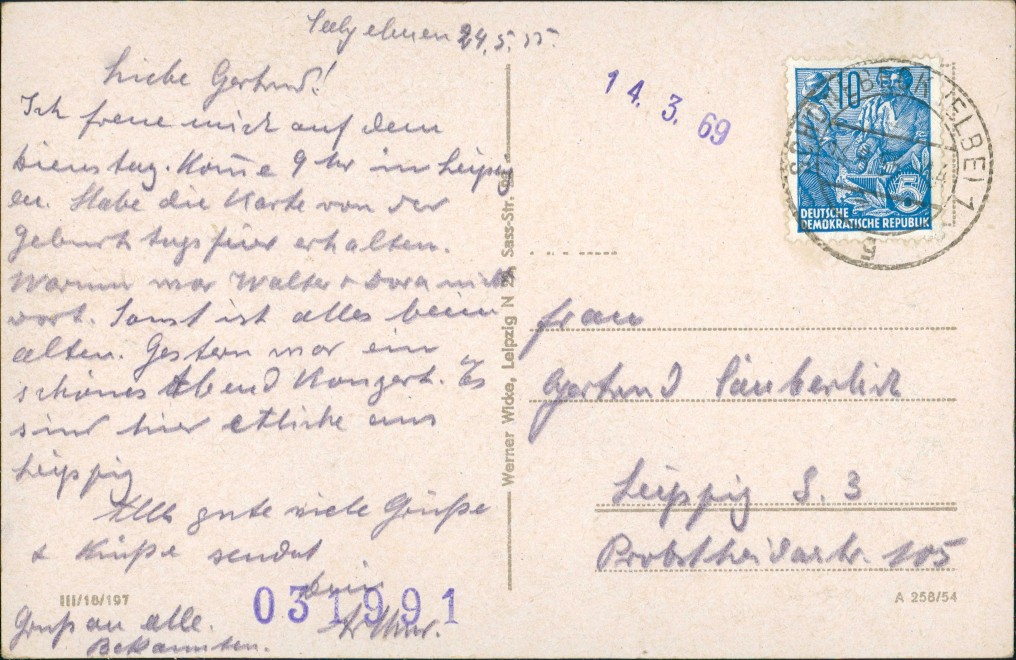 24.5.55.
Liebe Gertrud!
Ich freue mich auf dem
Dienstag. Kome 9 Uhr in Leipzig
an. Habe die Karte von der
Geburtstagsfeier erhalten.
Warum war Walter + Dora nicht
dort. Sonst ist alles beim
alten. Gestern war ein
schönes Abend Konzert. Es
sind hier etliche aus
Leipzig
Alles gute viele Grüße
+ Küße sendet
Dein
Arthur.
Gruß an alle.
Bekannten.
III/18/197
031991
Werner Wicke, Leipzig N 22, Sass-Str.
14.3.69
10
5
DEUTSCHE
DEMOKRATISCHE REPUBLIK
(ELBE) 1
Frau
Gertrud Säuberlich
Leipzig S. 3
Probstheidaerstr. 105
A 258/54